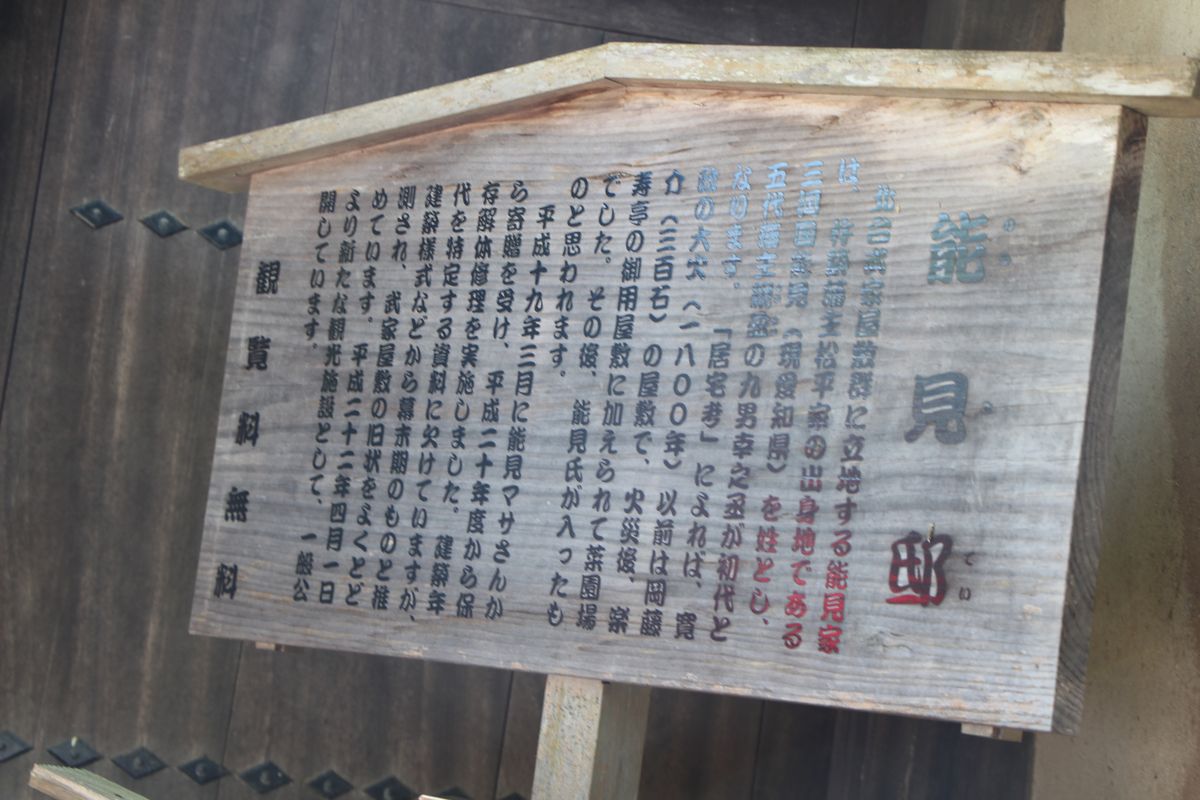 能見邸
のうみてい
北台武家屋敷群に立地する能見家
は、杵築藩主松平家の出身地である
三河国能見（現愛知県）を姓とし、
五代藩主親盈の九男幸之丞が初代と
なります。「居宅考」によれば、寛
政の大火（一八〇〇年）以前は岡藤
介（三百石）の屋敷で、火災後、楽
寿亭の御用屋敷に加えられて菜園場
でした。その後、能見氏が入ったも
のと思われます。
平成十九年三月に能見マサさんか
ら寄贈を受け、平成二十年度から保
存解体修理を実施しました。建築年
代を特定する資料に欠けていますが、
建築様式などから幕末期のものと推
測され、武家屋敷の旧状をよくとど
めています。平成二十二年四月一日
より新たな観光施設として、一般公
開しています。
観覧料無料